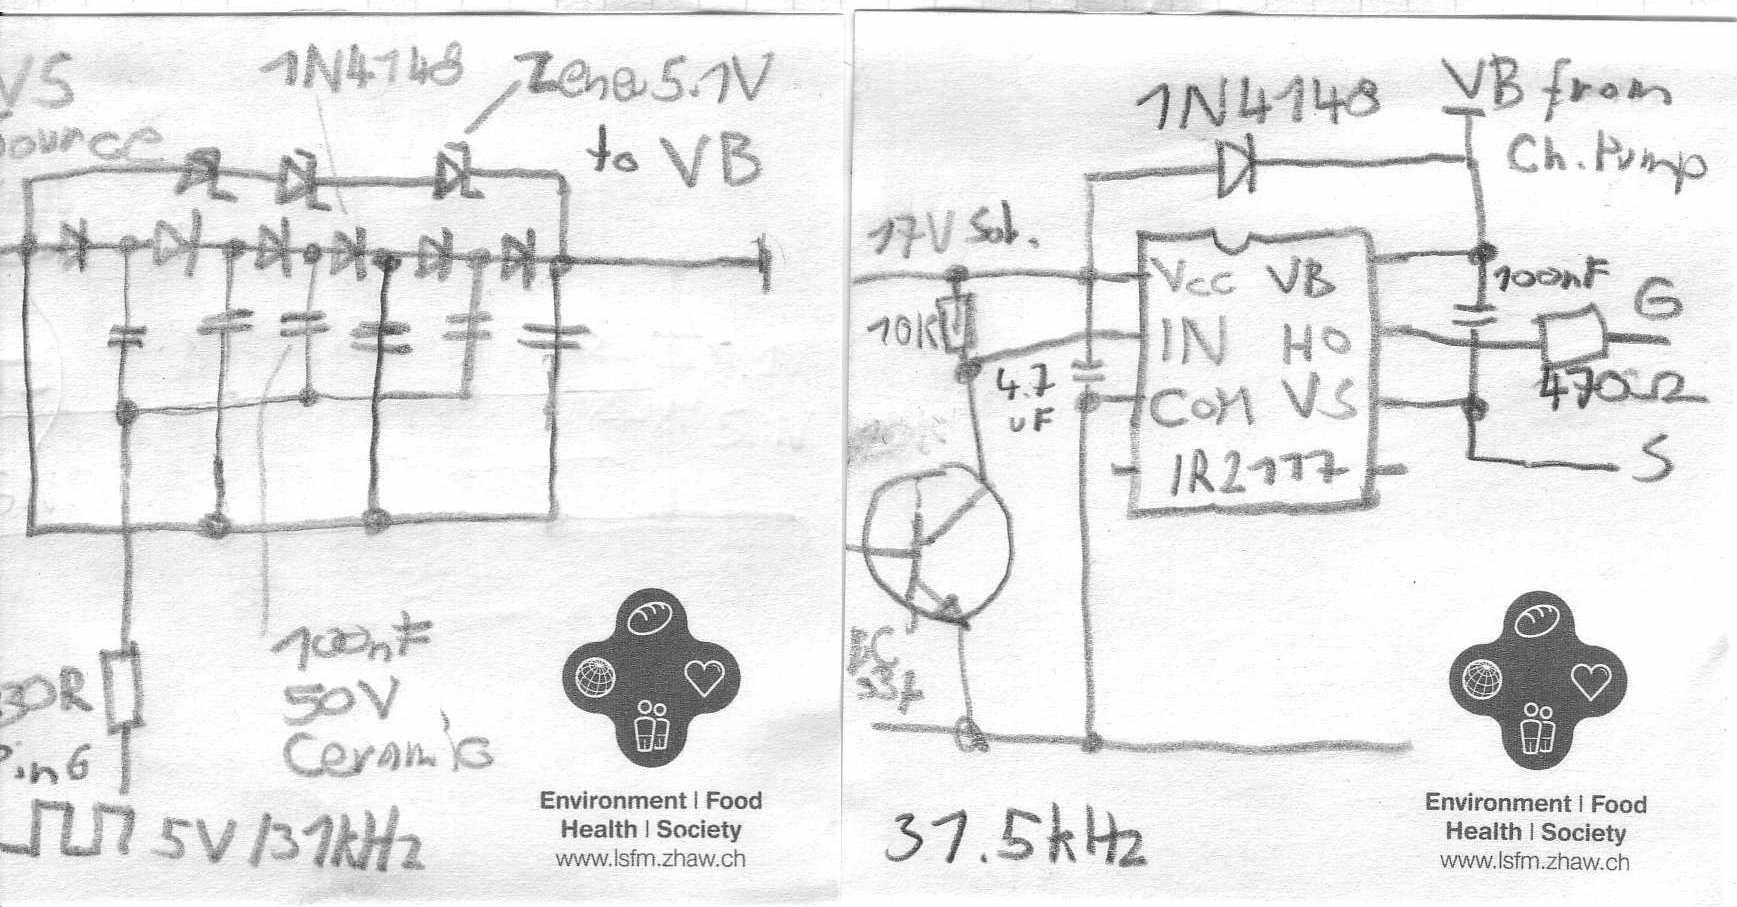 VS
source
1N4148
Zene 5.1V
to VB
30R
Pin6
5V/31kHz
100nF
50V
Ceramic
Environment | Food
Health | Society
www.lsfm.zhaw.ch
1N4148
VB from
Ch. Pump
17V Sol.
10K
4.7
uF
Vcc VB
IN HO
COM VS
IR2117
100nF
G
470Ω
S
BC
337
31.5kHz
Environment | Food
Health | Society
www.lsfm.zhaw.ch